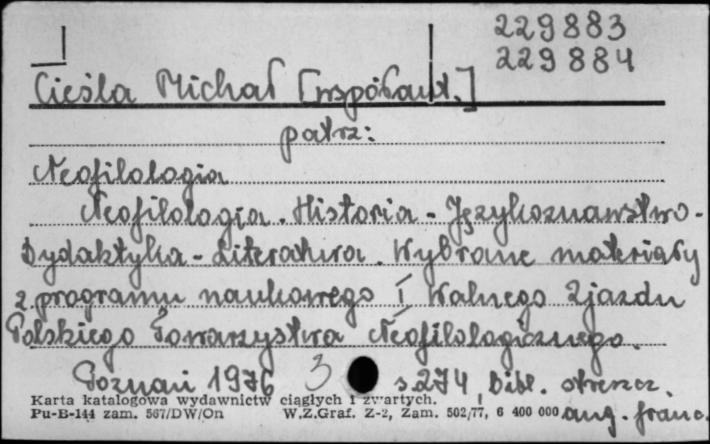 229883
229884
Cieśla Michał [współaut.]
patrz:
Neofilologia
Neofilologia. Historia - Językoznawstwo -
Dydaktyka - Literatura. Wybrane materiały
z programu naukowego I Walnego Zjazdu
Polskiego Towarzystwa Neofilologicznego.
Poznań 1976 3 s.274 Bibl. streszcz.
ang. franc.
Karta katalogowa wydawnictw ciągłych i zwartych.
Pu-B-144 zam. 567/DW/On W.Z.Graf. Z-2, Zam. 502/77, 6 400 000